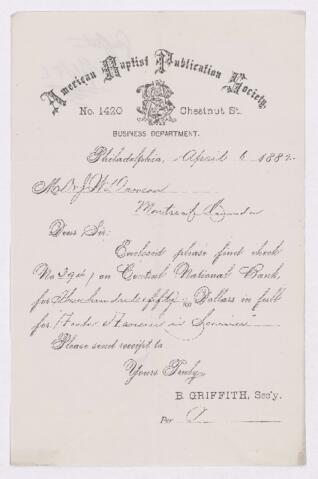 American Baptist Publication Society,
No. 1420 Chestnut St.
BUSINESS DEPARTMENT.
Philadelphia, April 6 1882
Dawson
Montreal, Canada
Dear Sir:
Enclosed please find check
No on Central National Bank,
for Three hundred & fifty Dollars in full
for
Please send receipt to
Yours Truly,
B. GRIFFITH, Sec'y.
Per